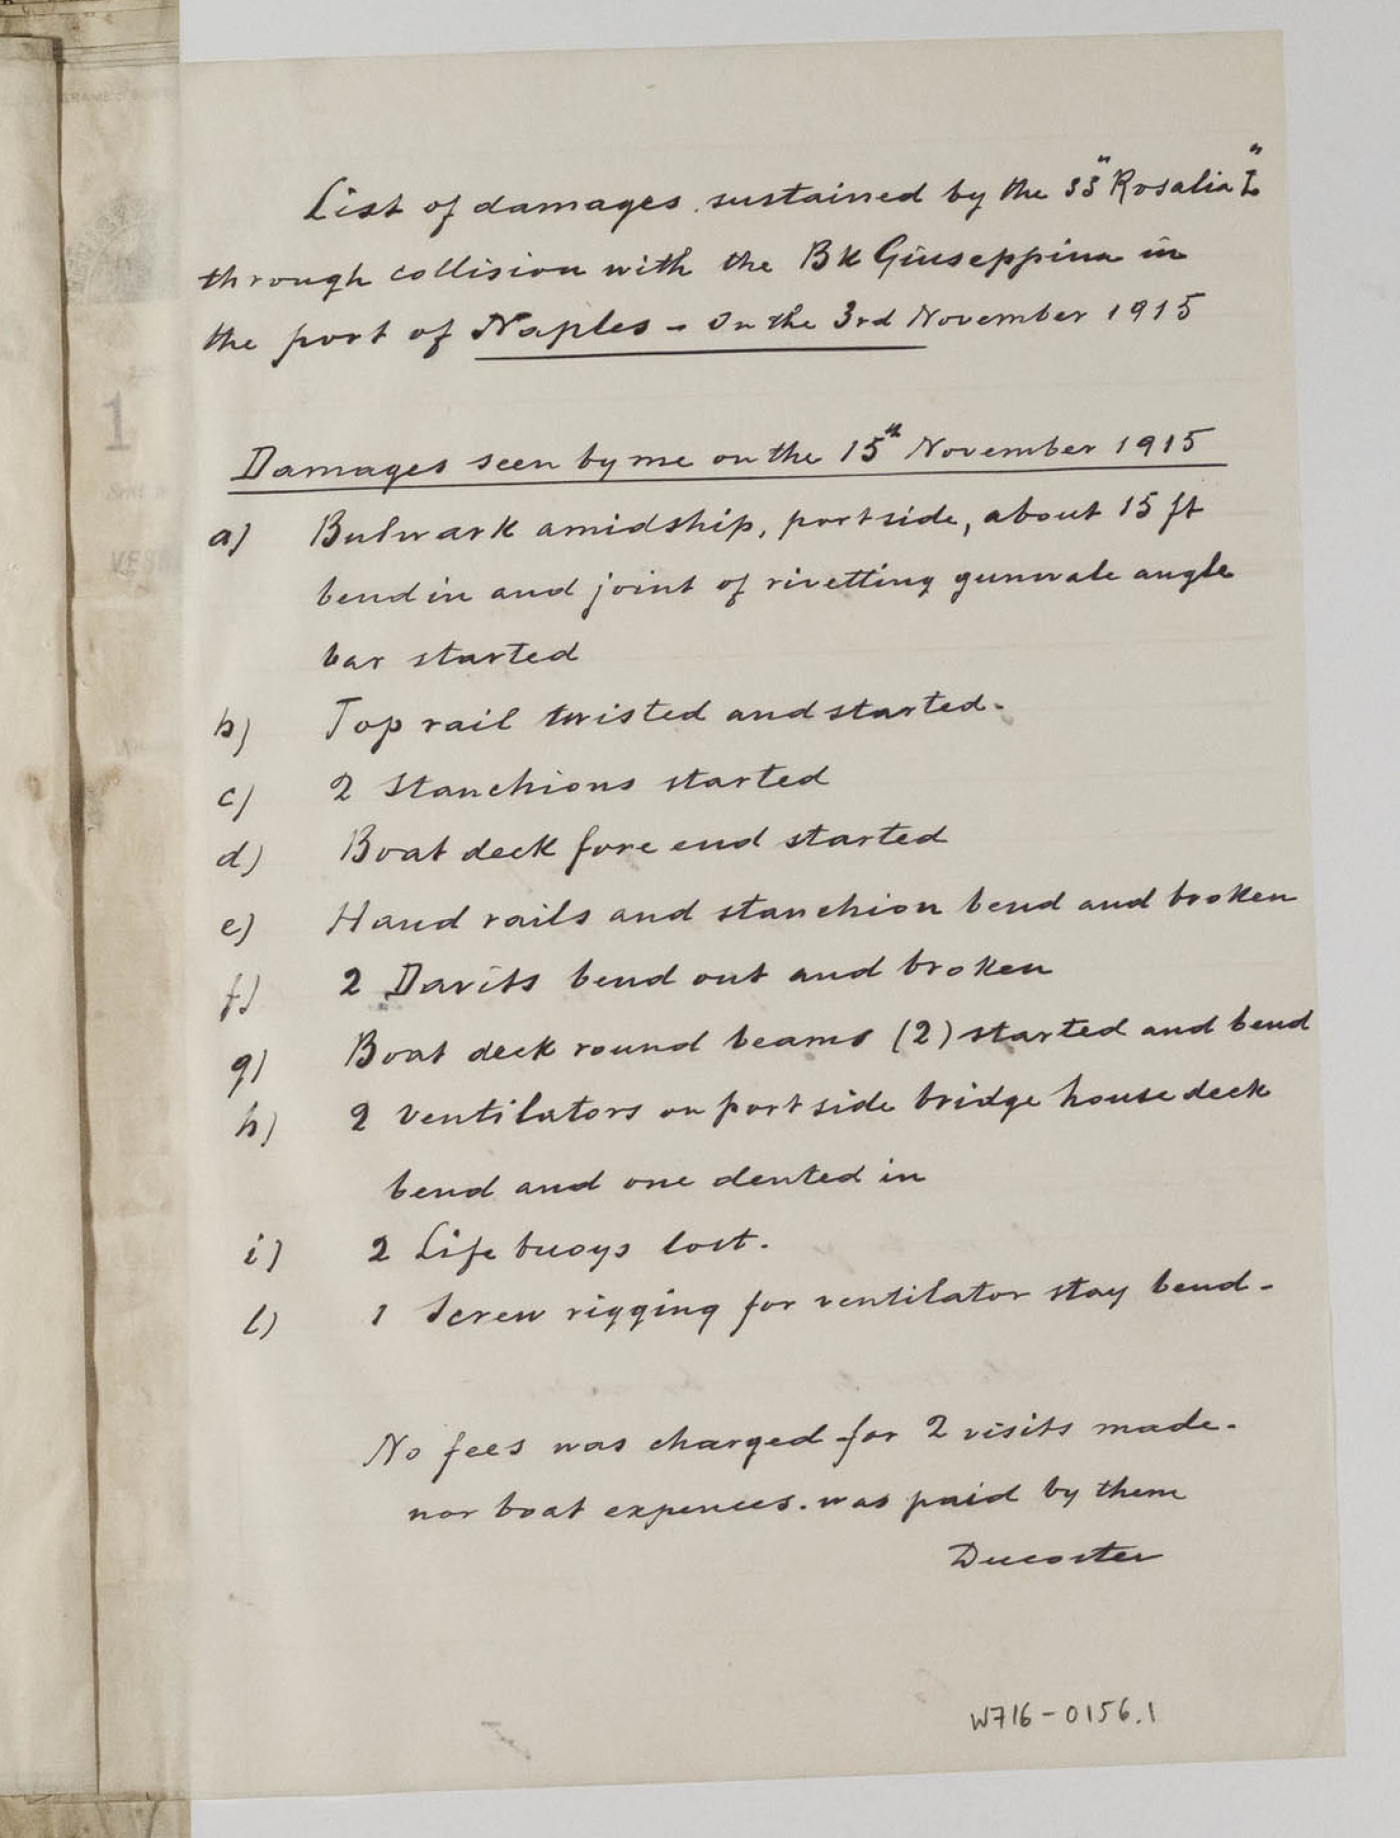 List of damages sustained by the SS "Rosalia L"
through collision with the Bk Giuseppina in
the port of Naples - On the 3rd November 1915
Damages seen by me on the 15th November 1915
a) Bulwark amidship, port side, about 15 ft
bend in and joint of rivetting gunwale angle
bar started
b) Top rail twisted and started.
c) 2 Stanchions started
d) Boat deck fore end started
e) Hand rails and stanchion bend and broken
f) 2 Davits bend out and broken
g) Boat deck round beams (2) started and bend
h) 2 ventilators on port side bridge house deck
bend and one dented in
i) 2 Life buoys lost.
l) 1 Screw rigging for ventilator stay bend -
No fees was charged for 2 visits made -
nor boat expences. was paid by them
Ducoster
W716-0156.1
1